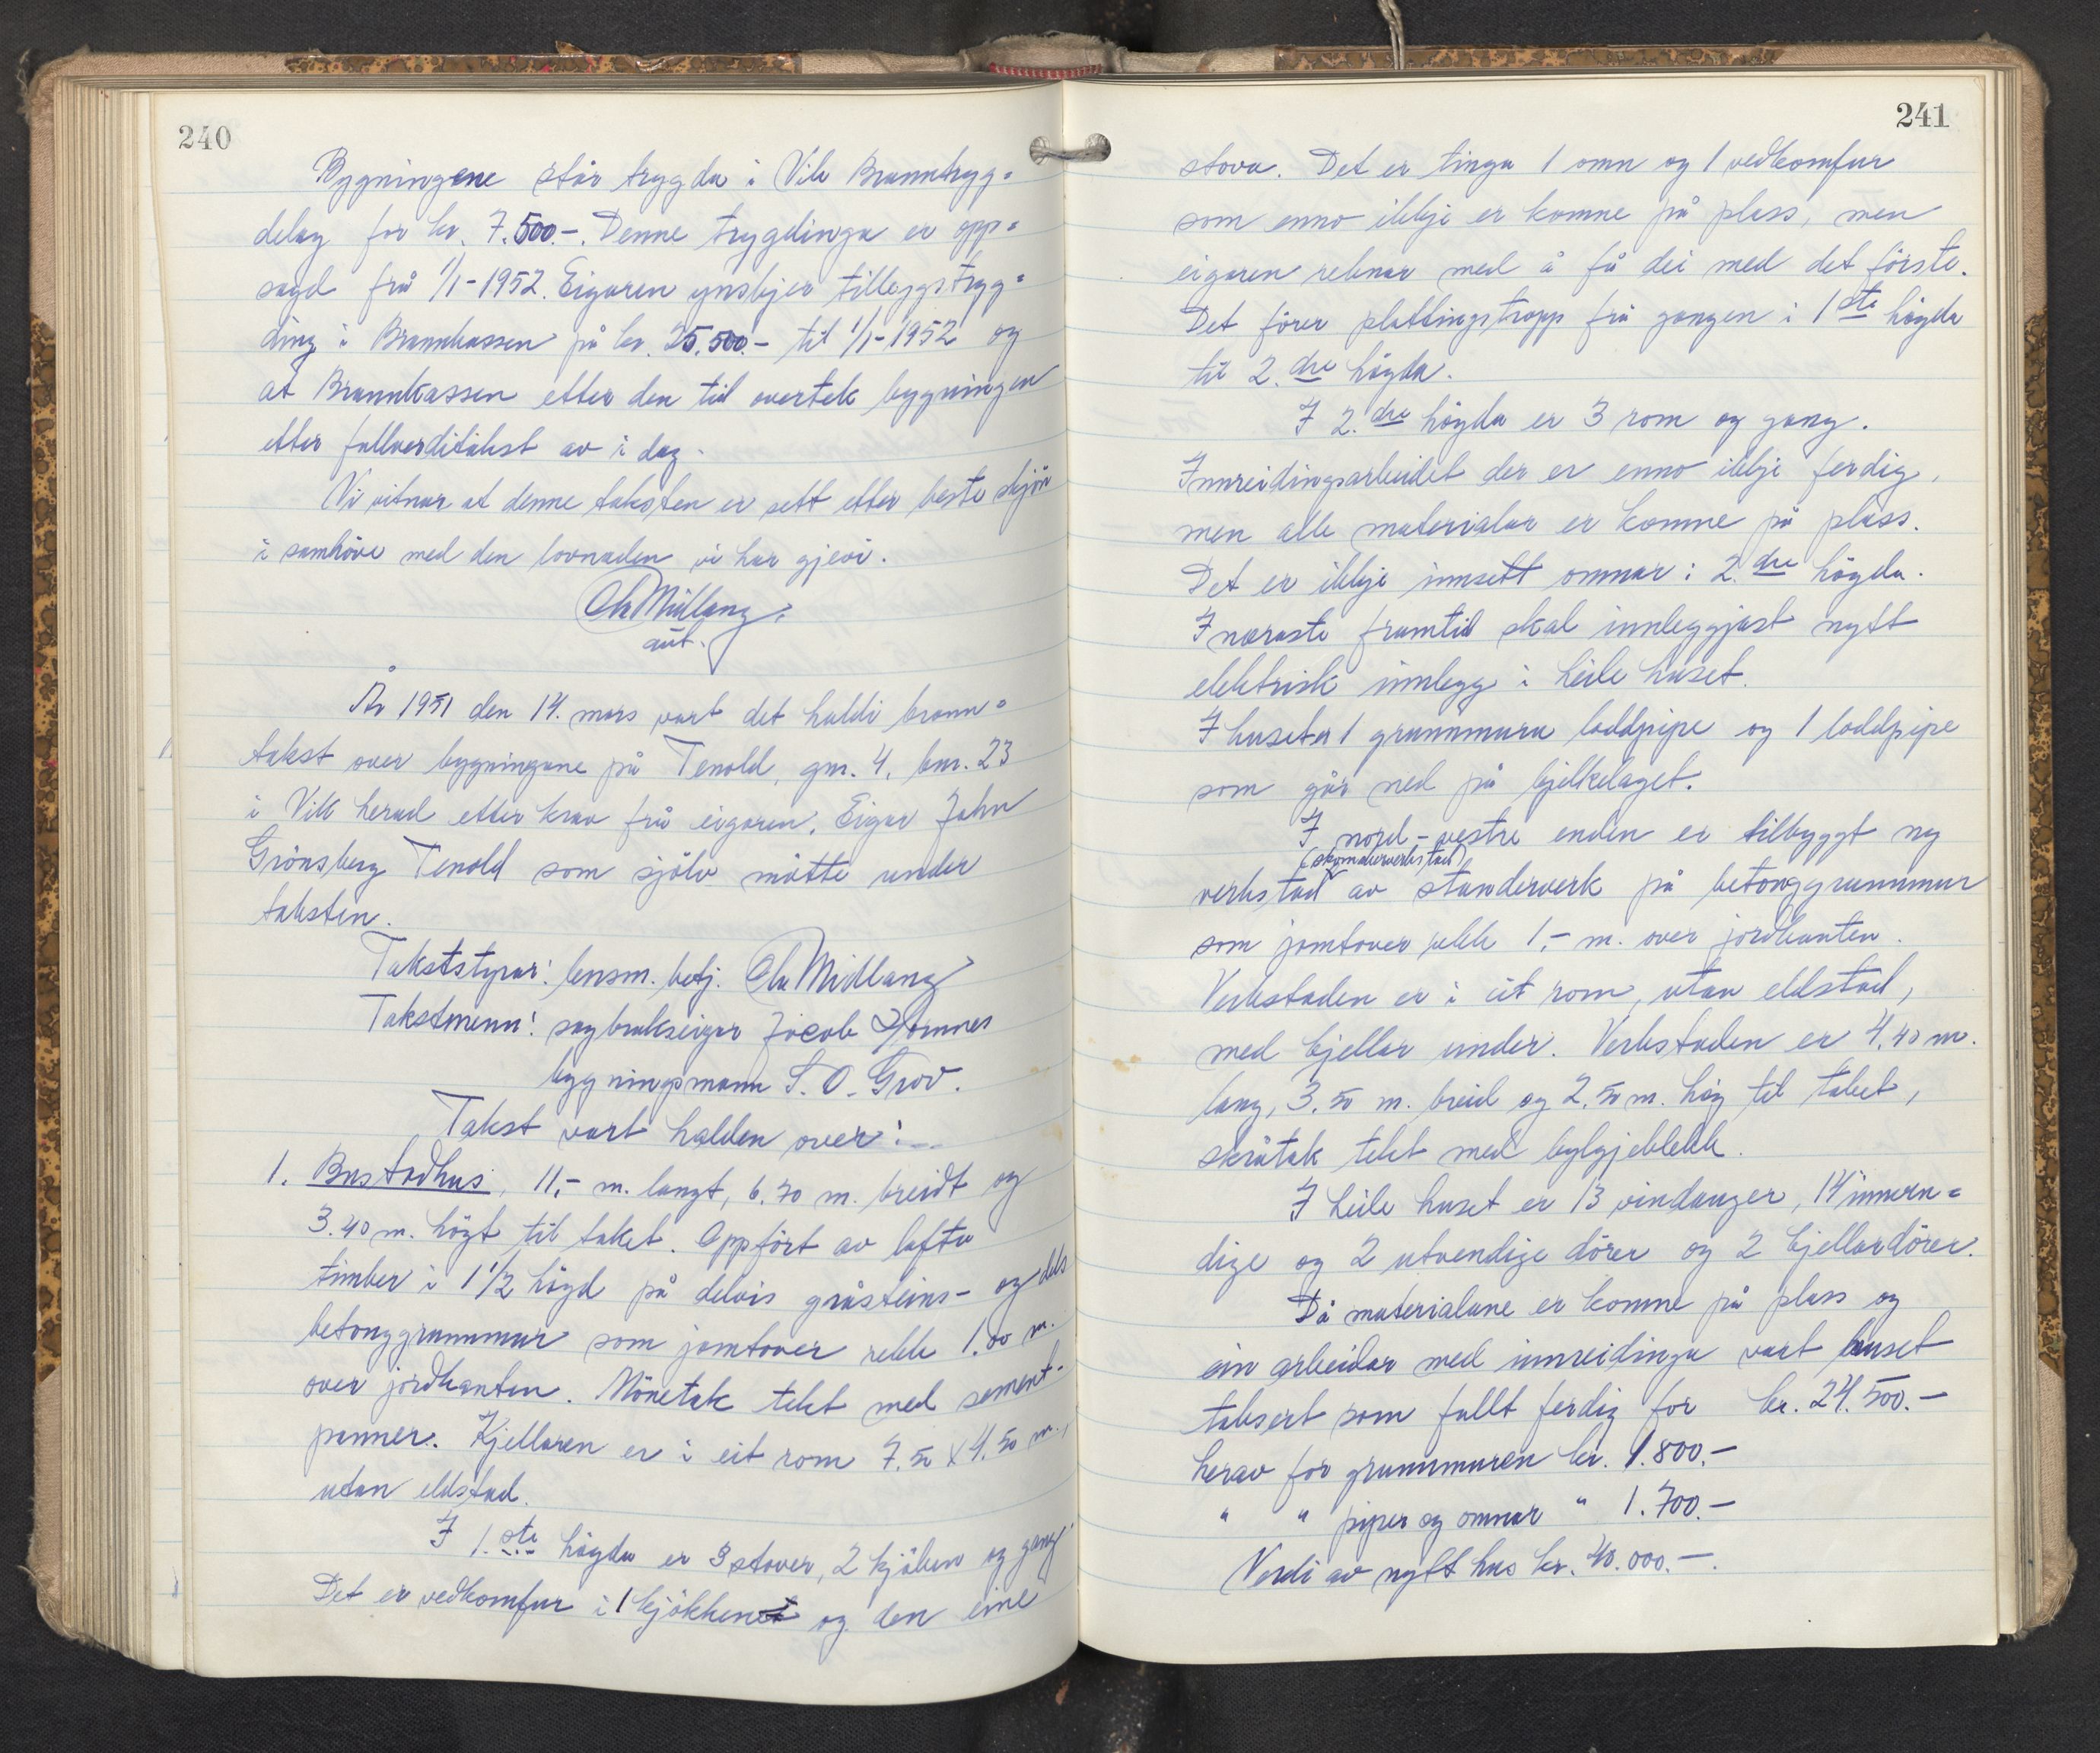 240
Bygningene står trygda i Vik Branntryg=
delag for kr. 7.500.-. Denne trygdinga er opp=
sagd frå 1/1-1952. Eigaren ynskjer tilleggstryg=
ding i Brannkassen på kr. 25.500.- til 1/1-1952 og
at Brannkassen etter den tid overtek bygningen
etter fullverditakst av i dag.
Vi vitnar at denne taksten er sett etter beste skjön
i samhöve med den lovnaden vi har gjevi.
Chr Midlang.
aut.
År 1951 den 14. mars vart det haldi brann=
takst over bygningane på Tenold, gnr. 4, bnr. 23
i Vik herad etter krav frå eigaren. Eigar John
Grönsberg Tenold som sjölv mötte under
taksten.
Takststyrar: lensm. betj. Chr Midlang
Takstmenn: sagbrukseigar Jocob Hömnes
bygningsmann S. O. Grov.
Takst vart halden over:
1. Bustadhus, 11,- m. langt, 6.70 m. breidt og
3.40 m. högt til taket. Oppfört av lafta
timber i 1 1/2 högd på delvis gråsteins- og dels
betonggrunnmur som jamtover rekk 1.00 m.
over jordkanten. Mönetak tekt med sement-
panner. Kjellaren er i eit rom 7.50 x 4.50 m.,
utan eldstad.
I 1.ste högda er 3 stover, 2 kjöken og gang
Det er vedkomfur i 1 kjökkenet og den eine
241
stova. Det er tinga 1 omn og 1 vedkomfur
som enno ikkje er komne på plass, men
eigaren reknar med å få dei med det förste.
Det förer plattingstropp frå gangen i 1ste högda
til 2.dre högda.
I 2.dre högda er 3 rom og gang.
Innreidingsarbeidet der er enno ikkje ferdig,
men alle materialar er komne på plass.
Det er ikkje innsett omnar i 2.dre högda.
I næraste framtid skal innleggjast nytt
elektrisk innlegg i heile huset.
I huset er 1 grunnmura loddpipe og 1 loddpipe
som går ned på bjelkelaget.
I nord-vestre enden er tilbyggt ny
(skomakerverkstad)
verkstad av standerverk på betonggrunnmur
som jamtover rekk 1,- m. over jordkanten.
Verkstaden er i eit rom, utan eldstad,
med kjellar under. Verkstaden er 4.40 m.
lang, 3.50 m. breid og 2.50 m. hög til taket,
skråtak tekt med bylgjeblekk.
I heile huset er 13 vindauger, 14 innven=
dige og 2 utvendige dörer og 2 kjellardörer.
Då materialane er komne på plass og
ein arbeidar med innreidinga vart huset
taksert som fullt ferdig for kr. 24.500.-
herav for grunnmuren kr. 1.800.-
" " piper og omnar " 1.700.-
Verdi av nytt hus kr. 40.000.-.